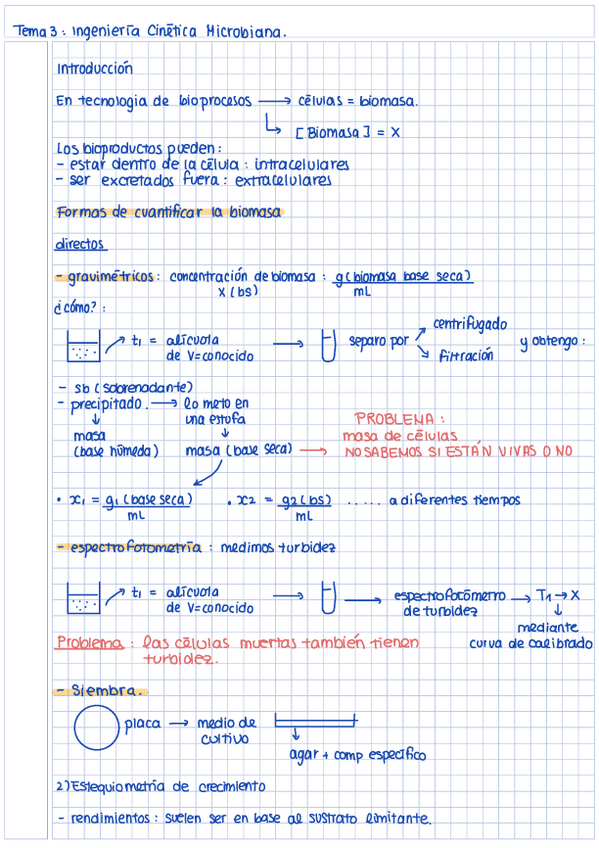 Tema 3: Ingeniería Cinética Microbiana.
Introducción
En tecnología de bioprocesos → células = biomasa.
[Biomasa] = X
Los bioproductos pueden:
- estar dentro de la célula: intracelulares
- ser excretados fuera: extracelulares
Formas de cuantificar la biomasa
directos
- gravimétricos: concentración de biomasa: g(biomasa base seca)
X (bs) mL
¿cómo?:
t1 = alícuota de V=conocido → separo por centrifugado filtración y obtengo:
- sb (sobrenadante)
- precipitado. → lo meto en una estufa
masa (base húmeda) masa (base seca) →
PROBLEMA:
masa de células
NO SABEMOS SI ESTÁN VIVAS O NO
• x1 = g1 (base seca) . x2 = g2 (bs) ..... a diferentes tiempos
mL mL
- espectrofotometría: medimos turbidez
t1 = alícuota de V=conocido → → espectrofotómetro de turbidez → T1 → X
mediante curva de calibrado
Problema: las células muertas también tienen
turbidez.
- Siembra.
placa → medio de cultivo
agar + comp específico
2) Estequiometría de crecimiento
- rendimientos: suelen ser en base al sustrato limitante.